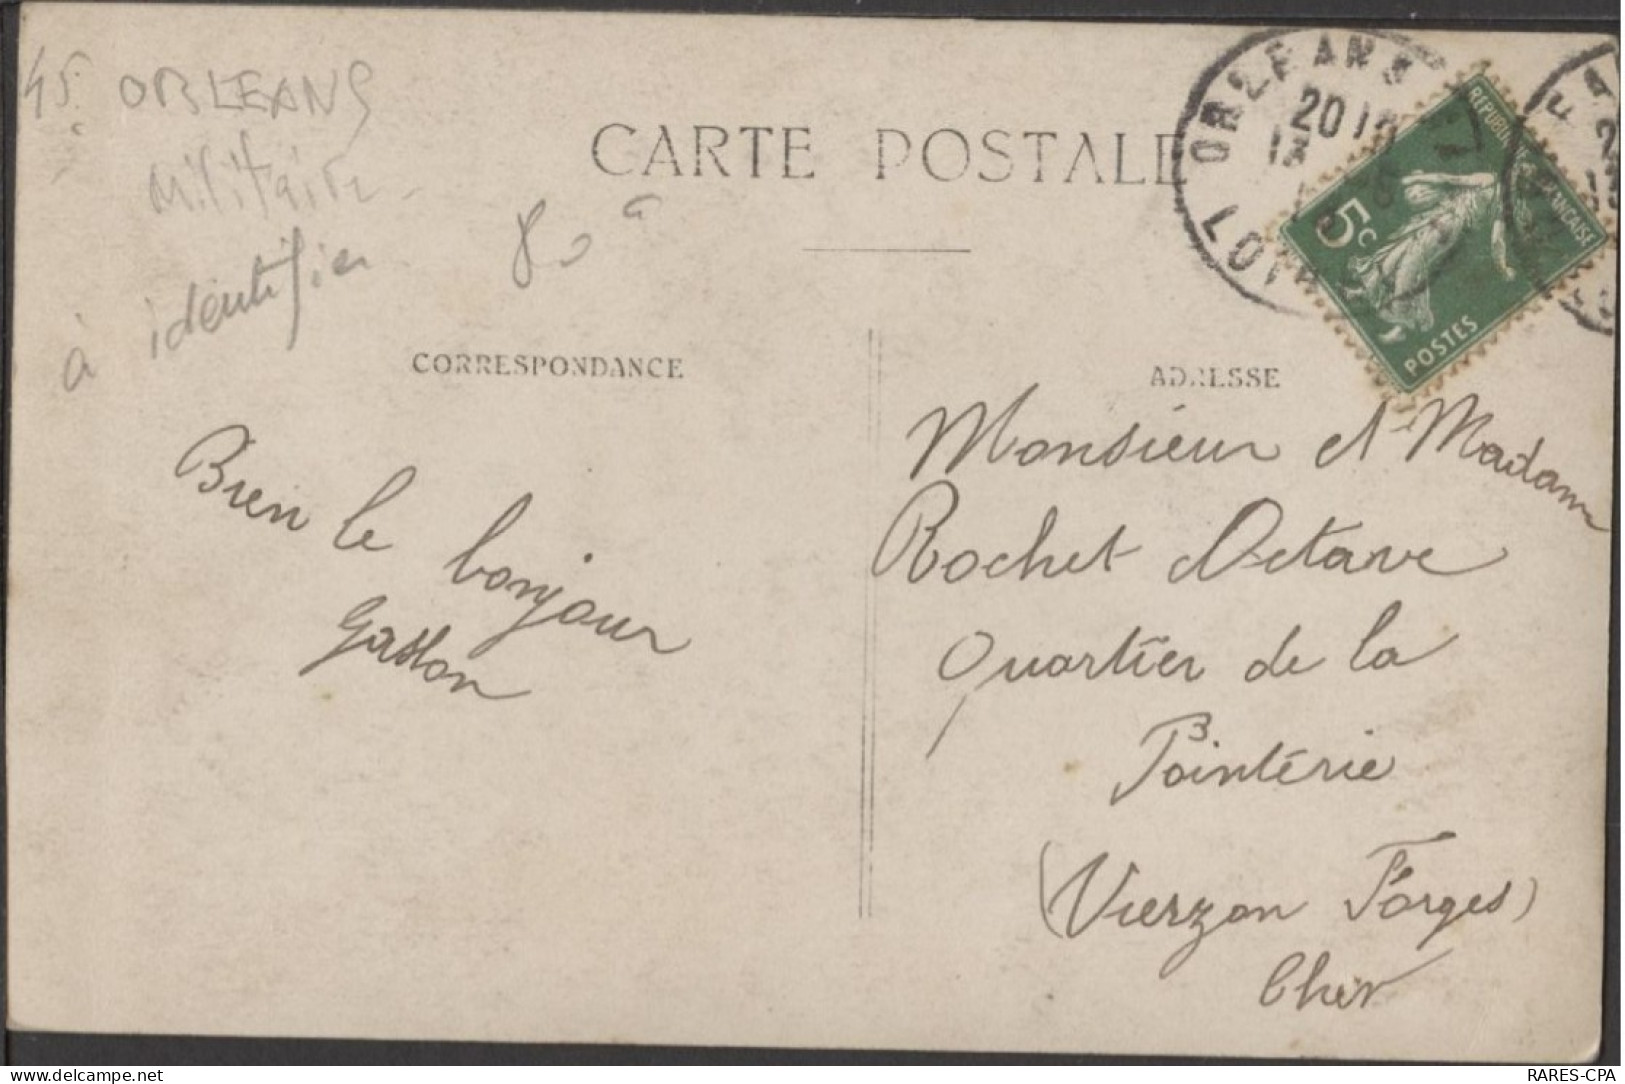 45 ORLEANS
militaire
à identifier
80
CARTE POSTALE
ORLEANS
LOIRET
20 10
13
RÉPUBLIQUE FRANÇAISE
5c
POSTES
CORRESPONDANCE
ADRESSE
Bien le bonjour
Gaston
Monsieur et Madam
Rochet Octave
Quartier de la
Pointérie
(Vierzon Forges)
Cher
RARES-CPA